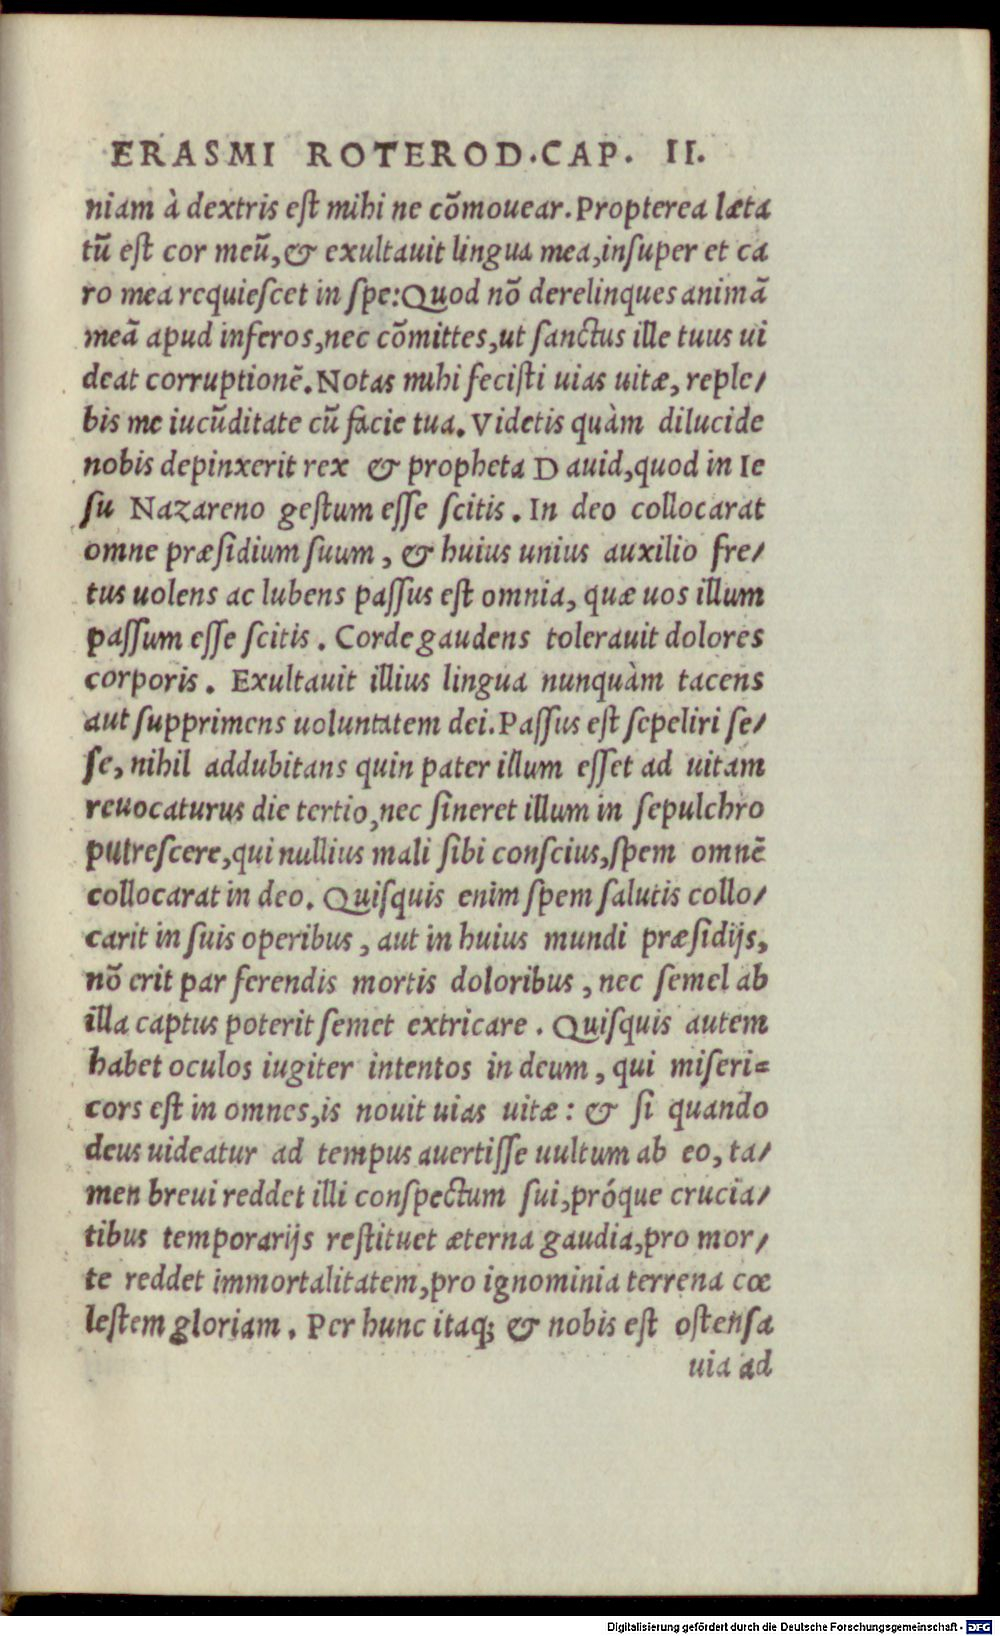 ERASMI ROTEROD.CAP. II.
niam à dextris eſt mihi ne cõmouear. Propterea læta
tũ est cor meũ, & exultauit lingua mea, inſuper et ca
ro mea requieſcet in ſpe: Quod nõ derelinques animã
meã apud inferos, nec cõmittes, ut ſanctus ille tuus ui
deat corruptionẽ. Notas mihi feciſti uias uitæ, reple/
bis me iucũditate cũ facie tua. Videtis quàm dilucide
nobis depinxerit rex & propheta Dauid, quod in Ie
ſu Nazareno geſtum eſſe ſcitis. In deo collocarat
omne præſidium ſuum, & huius unius auxilio fre/
tus uolens ac lubens paſſus eſt omnia, quæ uos illum
paſſum eſſe ſcitis. Corde gaudens tolerauit dolores
corporis. Exultauit illius lingua nunquàm tacens
aut ſupprimens uoluntatem dei. Paſſus eſt ſepeliri ſe/
ſe, nihil addubitans quin pater illum eſſet ad uitam
reuocaturus die tertio, nec ſineret illum in ſepulchro
putreſcere, qui nullius mali ſibi conſcius, ſpem omnẽ
collocarat in deo. Quiſquis enim ſpem ſalutis collo/
carit in ſuis operibus, aut in huius mundi præſidijs,
nõ erit par ferendis mortis doloribus, nec ſemel ab
illa captus poterit ſemet extricare. Quiſquis autem
habet oculos iugiter intentos in deum, qui miſeri=
cors eſt in omnes, is nouit uias uitæ: & ſi quando
deus uideatur ad tempus auertiſſe uultum ab eo, ta/
men breui reddet illi conſpectum ſui, próque crucia/
tibus temporarijs reſtituet æterna gaudia, pro mor/
te reddet immortalitatem, pro ignominia terrena cœ
leſtem gloriam. Per hunc itaq; & nobis eſt oſtenſa
uia ad
Digitalisierung gefördert durch die Deutsche Forschungsgemeinschaft - DFG